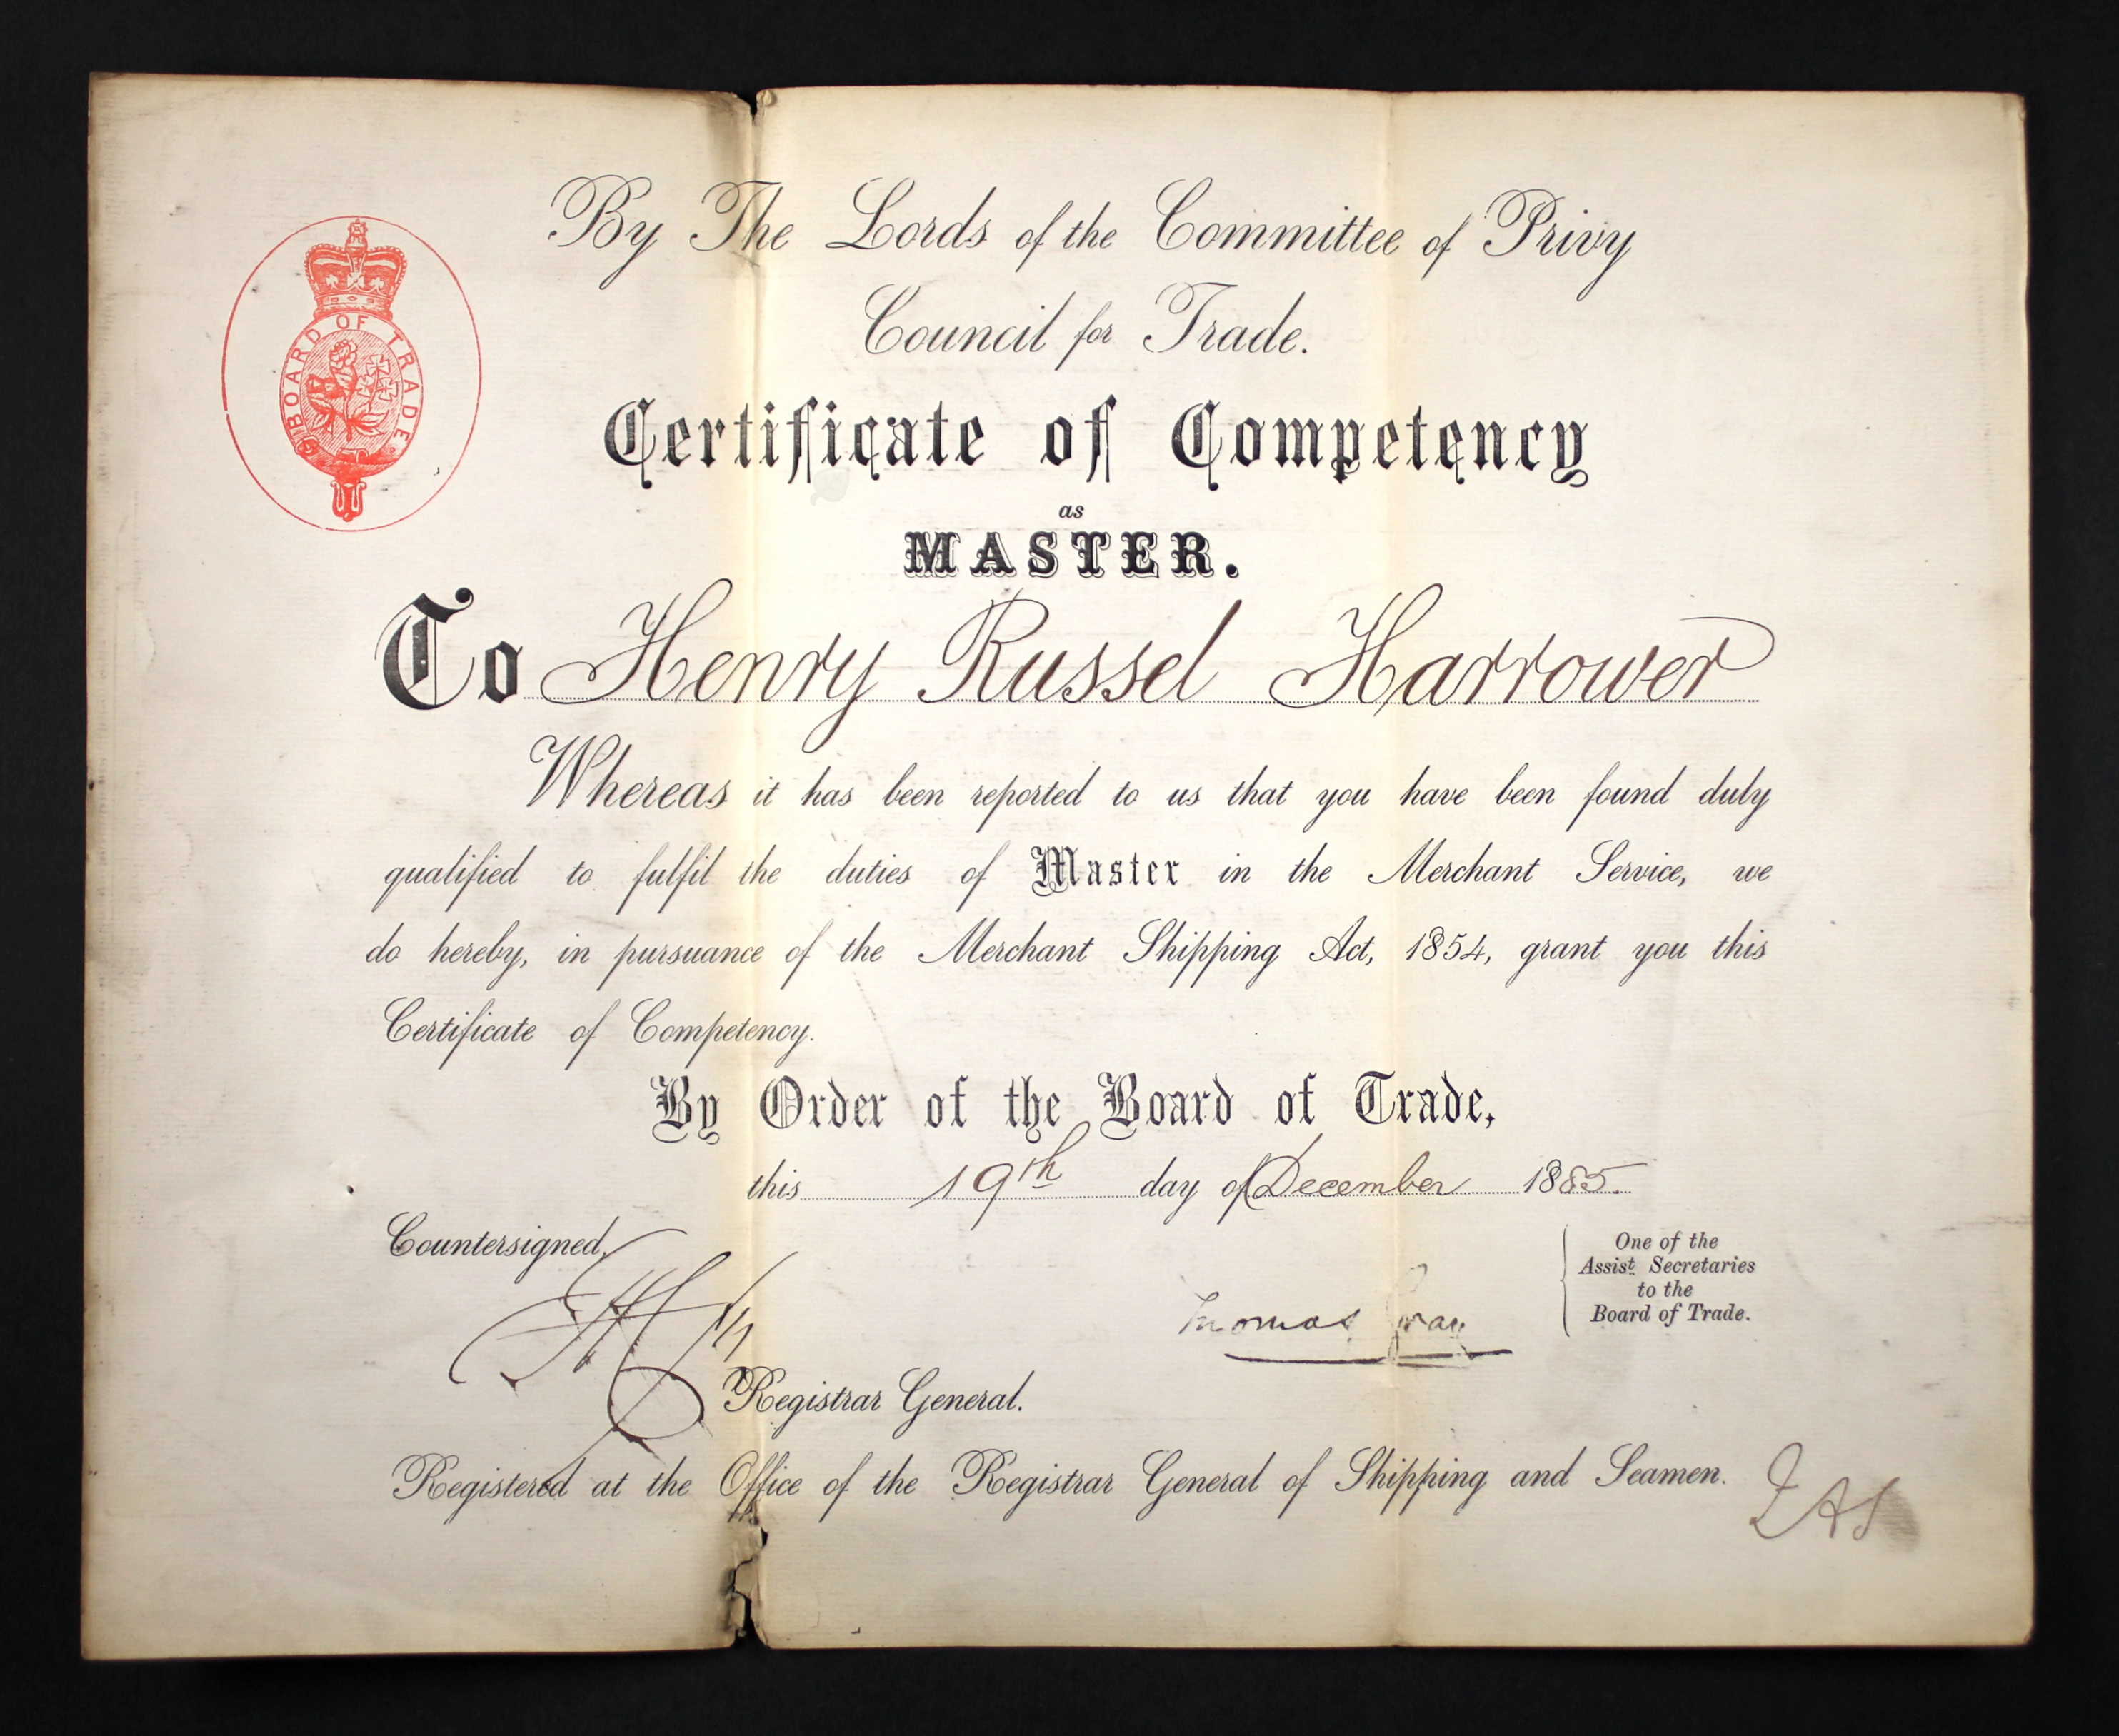 By The Lords of the Committee of Privy
Council for Trade.
BOARD OF TRADE
Certificate of Competency
as
MASTER.
To Henry Russel Harrower
Whereas it has been reported to us that you have been found duly
qualified to fulfil the duties of Master in the Merchant Service, we
do hereby, in pursuance of the Merchant Shipping Act, 1854, grant you this
Certificate of Competency.
By Order of the Board of Trade,
this 19th day of December 1885.
Countersigned,
Thomas Gray
One of the
Assist. Secretaries
to the
Board of Trade.
Registrar General.
Registered at the Office of the Registrar General of Shipping and Seamen.